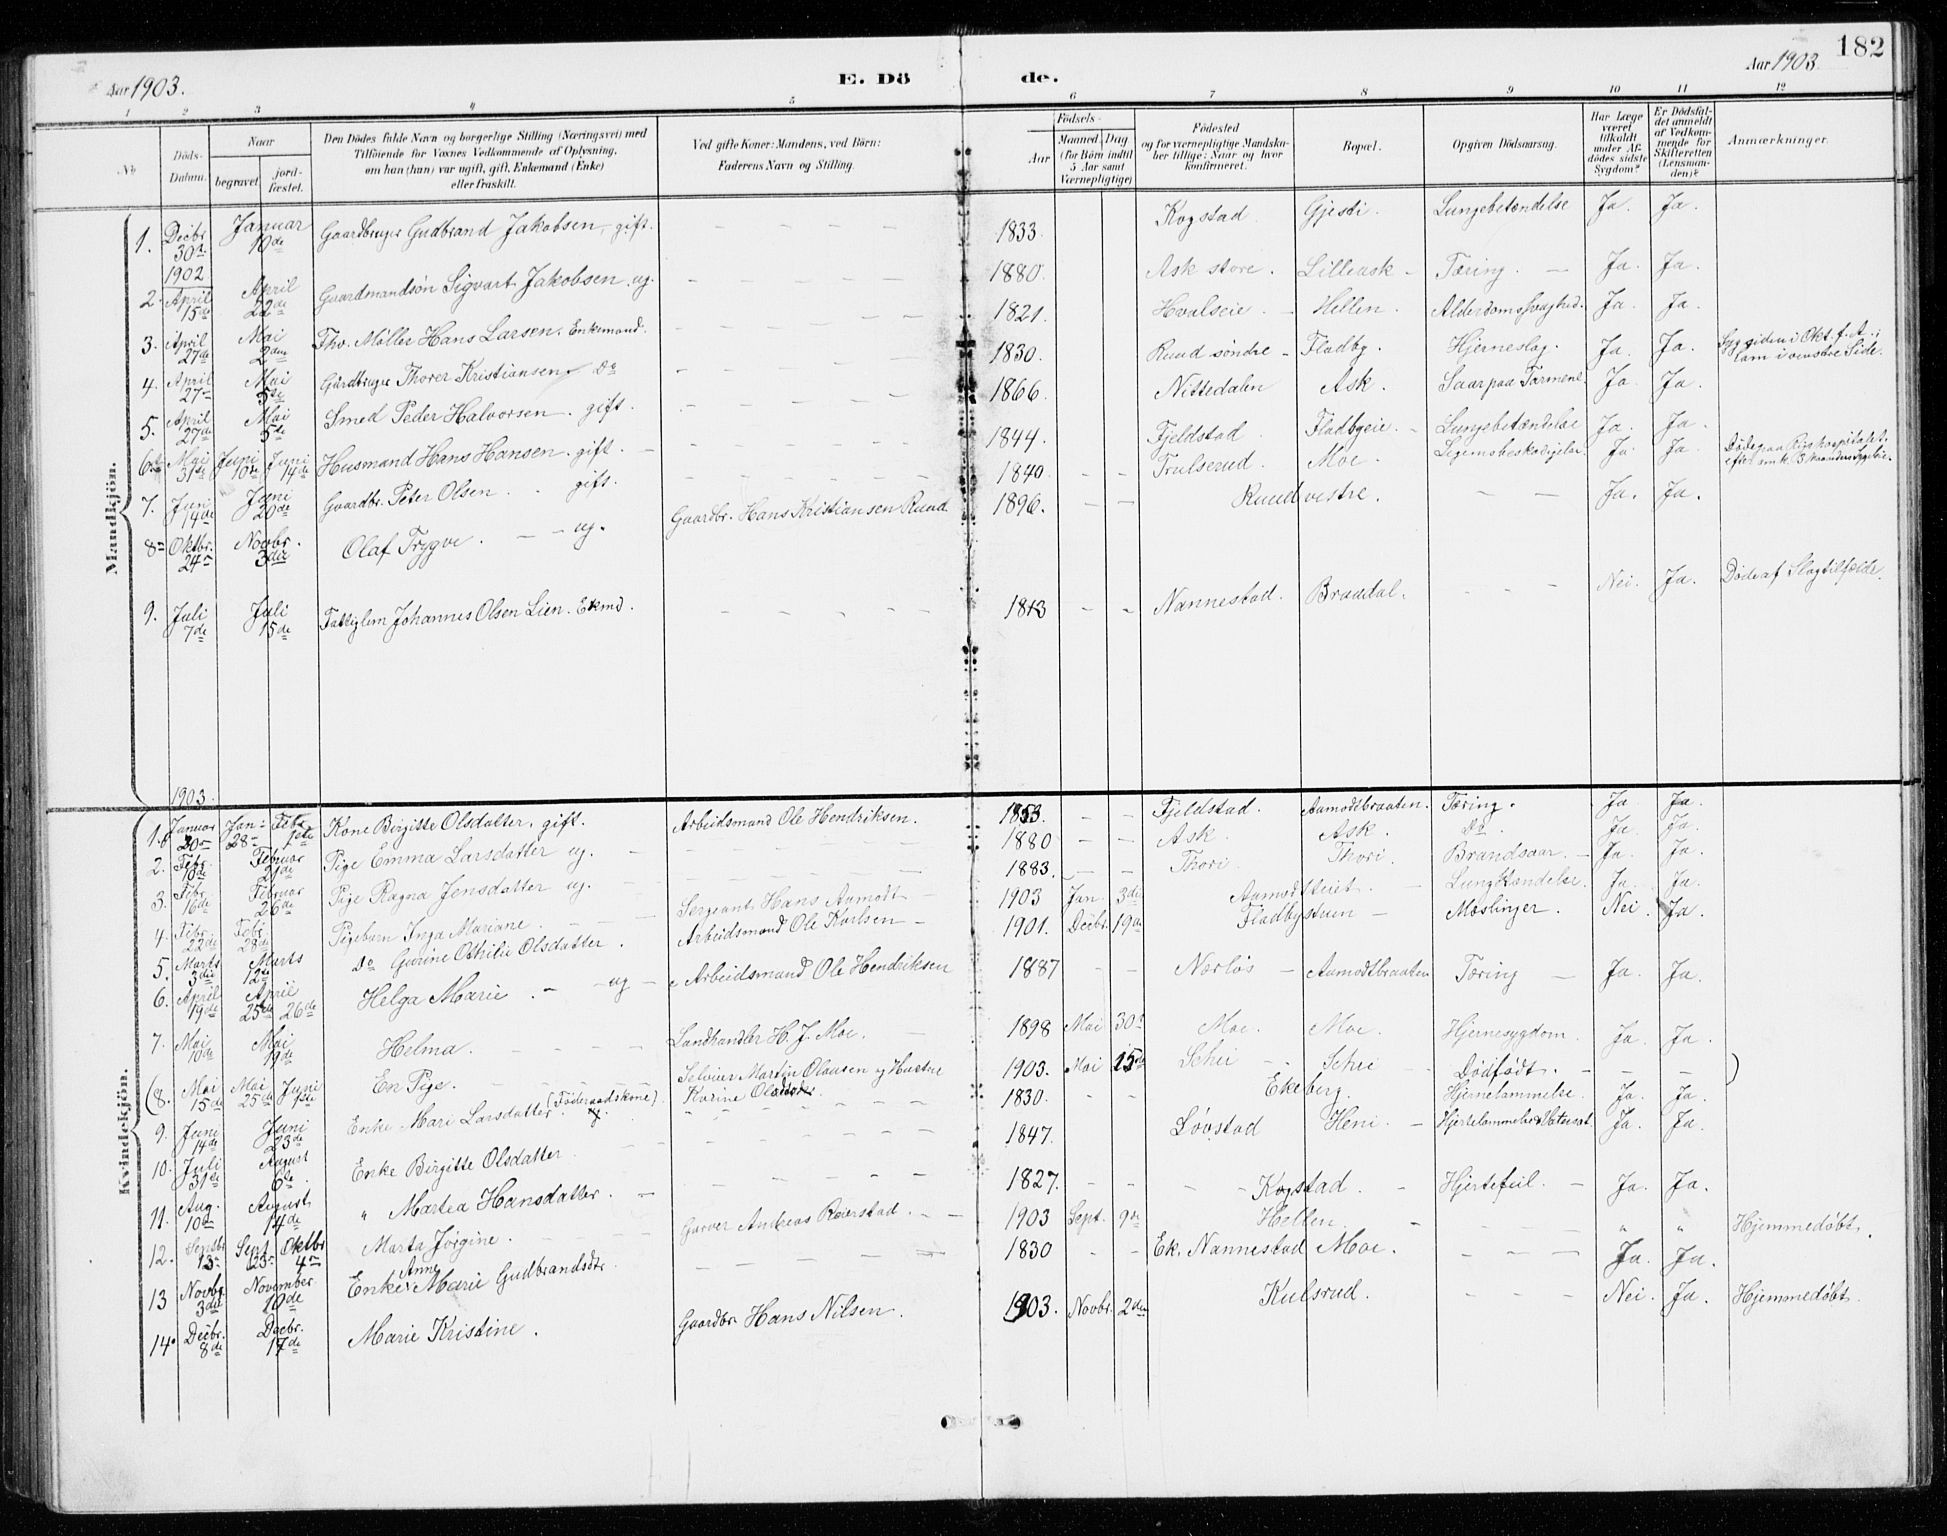 182
Aar 1903. E. Dö de. Aar 1903
1 2 3 4 5 6 7 8 9 10 11 12
No. Döds-Datum. Naar begravet. jord-fæstet. Den Dödes fulde Navn og borgerlige Stilling (Næringsvei) med Tilföiende for Voxnes Vedkommende af Oplysning, om han (hun) var ugift, gift, Enkemand (Enke) eller fraskilt. Ved gifte Koner: Mandens, ved Börn: Faderens Navn og Stilling. Födsels- Aar Maaned. Dag (for Börn indtil 5 Aar samt Værnepligtige) Födested og for værnepligtige Mandskaber tillige: Naar og hvor konfirmeret. Bopæl. Opgiven Dödsaarsag. Har Læge været tilkaldt under Afdödes sidste Sygdom? Er Dödsfaldet anmeldt af Vedkommende for Skifteretten (Lensmanden)? Anmærkninger.
Mandkjön.
1. Decbr 30te 1902 Januar 10de Gaardbruger Gudbrand Jakobsen, gift. 1833. Kogstad. Gjesti. Lungebetændelse Ja. Ja.
2. April 15de April 22de Gaardmandsön Sigvart Jakobsen, ug. 1880. Ask store. Lilleask Tæring. Ja. Ja.
3. April 27de Mai 2den Fhv. Møller Hans Larsen, Enkemand. 1821. Hvalseie. Hellen. Alderdomssvaghed. Ja. Ja.
4. April 27de Mai 5te Gårdbruger Thorer Kristiansen Do 1830. Ruud søndre Fladby. Hjerneslag. Ja. Ja. Syg siden i Okt. f. A., lam i venstre Side.
5. April 27de Mai 5te Smed Peder Halvorsen. gift. 1866. Nittedalen Ask. Saar paa Tarmene. Ja. Ja.
6te Mai 31te Juni 10de Juni 14de Husmand Hans Hansen. gift. 1844. Fjeldstad Fladbyeie. Lungebetændelse Ja. Ja.
7. Juni 14de Juni 20de Gaardbr. Peter Olsen. gift. 1840. Trulserud. Moe. Legemsbeskadigelse. Ja. Ja. Døde paa Rigshospitalet
8. Oktbr. 24 Novbr. 3die Olaf Trygve. ug. Gaardbr. Hans Kristiansen Ruud 1896. Ruud vestre. Ja. Ja.
9. Juli 7de Juli 15de Fattiglem Johannes Olsen Lien. Ekmd. 1813 Nannestad. Braadal. Nei. Ja. Døde af Slagtilfælde.
Kvindekjön.
1903
1. Januar 20 Jan: 28 Febr 1ste Kone Birgitte Olsdatter, gift. Arbeidsmand Ole Hendriksen. 1853. Fjeldstad. Aamodtbraaten. Tæring. Ja. Ja.
2. Febr. 10de Februar 21de Pige Emma Larsdatter ug. 1880 Ask Ask. Do. Ja. Ja.
3. Febr. 16de Februar 26de Pige Ragna Jensdatter ug. 1883. Thori. Thori. Brandsaar. Ja. Ja.
4. Febr. 22de Febr. 28de Pigebarn Inga Mariane. Sergeant Hans Aamodt 1903 Jan. 3die Aamodteiet. Lungbtændelse. Ja. Ja.
5. Marts 3die Marts 12te Do Gunine Othilie Olsdatter. Arbeidsmand Ole Karlsen 1901. Decbr. 19de Fladbystuen Meslinger. Nei. Ja.
6. April 19de April 25de 26de Helga Marie. ug Arbeidsmand Ole Hendriksen 1887 Nærløs Aamodtbraaten Tæring Ja. Ja.
7. Mai 10de Mai 19de Helma. Landhandler H. J. Moe. 1898 Mai 30te Moe. Moe. Hjernesygdom. Ja. Ja.
(8. Mai 15de Mai 25de Juni 1ste En Pige. Selveier Martin Olausen og Hustru Karine Olsdatter 1903. Mai 15de Schei Schei Dødfødt. )
9. Juni 14de Juni 23de Enke Mari Larsdatter (Føderaadskone). 1830. Ekeberg. Hjernelammelse. Ja. Ja.
10. Juli 31te August 6te. Enke Birgitte Olsdatter. 1847. Løvstad Heni. Hjertelammelse & Vatersot Ja. Ja.
11. Aug. 10de August 14de " Martea Hansdatter. 1827. Kogstad. Hjertefeil. Ja. Ja.
12. Septbr. 13 Sept 23 Oktbr 4 Marta Jørgine. Garver Andreas Reierstad. 1903 Sept. 9de Hellen. " " Hjemmedøbt.
13 Novbr 3die November 10de Enke Anne Marie Gudbrandsdtr. 1830 Ek. Nannestad Moe. Ja. Ja.
14. Decbr. 8de Decbr. 17de Marie Kristine. Gaardbr. Hans Nilsen. 1903. Novbr. 2den Kulsrud. Nei. Ja. Hjemmedøbt.